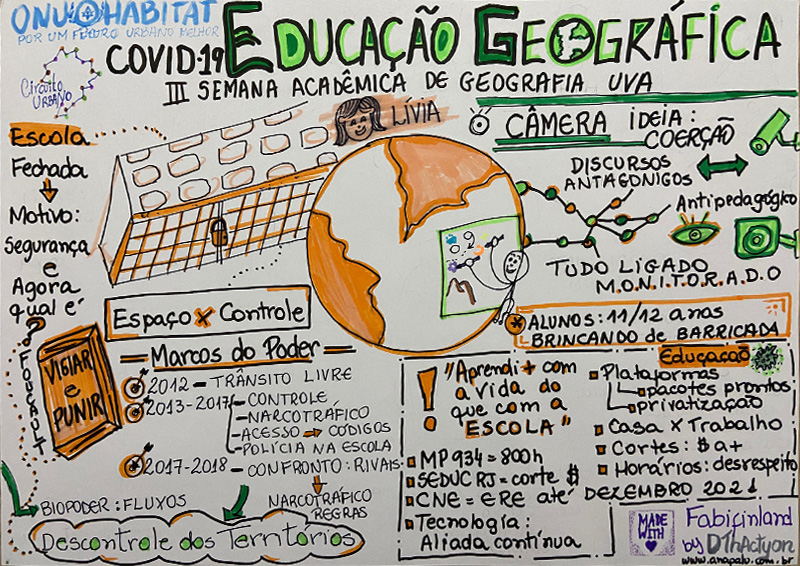 ONU HABITAT
POR UM FUTURO URBANO MELHOR
Circuito
URBANO
COVID-19 EDUCAÇÃO GEOGRÁFICA
III SEMANA ACADÊMICA DE GEOGRAFIA UVA
LÍVIA
CÂMERA IDEIA:
COERÇÃO
DISCURSOS
ANTAGÔNIGOS
Antipedagógico
TUDO LIGADO
M.O.N.I.T.O.R.A.D.O
ALUNOS: 11/12 anos
BRINCANDO de BARRICADA
Escola
Fechada
Motivo:
Segurança
e
Agora
qual é
?
FOUCAULT
VIGIAR
e
PUNIR
Espaço x Controle
Marcos do Poder
2012 - TRÂNSITO LIVRE
2013-2017 - CONTROLE
- NARCOTRÁFICO
- ACESSO → CÓDIGOS
- POLÍCIA NA ESCOLA
2017-2018 - CONFRONTO: RIVAIS
NARCOTRÁFICO
REGRAS
BIOPODER: FLUXOS
Descontrole dos Territórios
! "Aprendi + com
a vida do
que com a
ESCOLA"
MP934 = 800h
SEDUC RJ = corte $
CNE = ERE até DEZEMBRO 2021
Tecnologia:
Aliada contínua
Educação
Plataformas
pacotes prontos
privatização
Casa X Trabalho
Cortes: $ a+
Horários: desrespeito
MADE
WITH
Fabifinland
by D1hActyon
www.anapalu.com.br